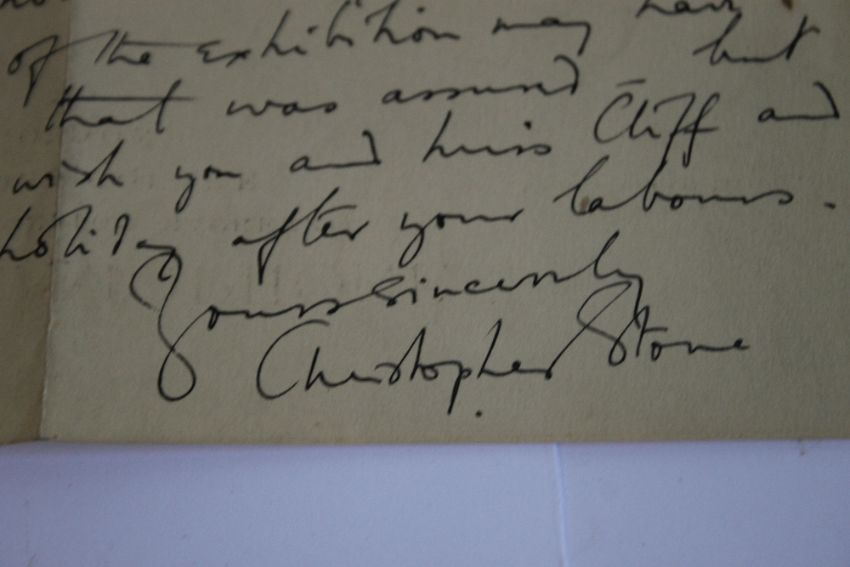 of the exhibition may have
that was assured – but
wish you and Miss Cliff and
holiday after your labours.
Yours sincerely
Christopher Stone